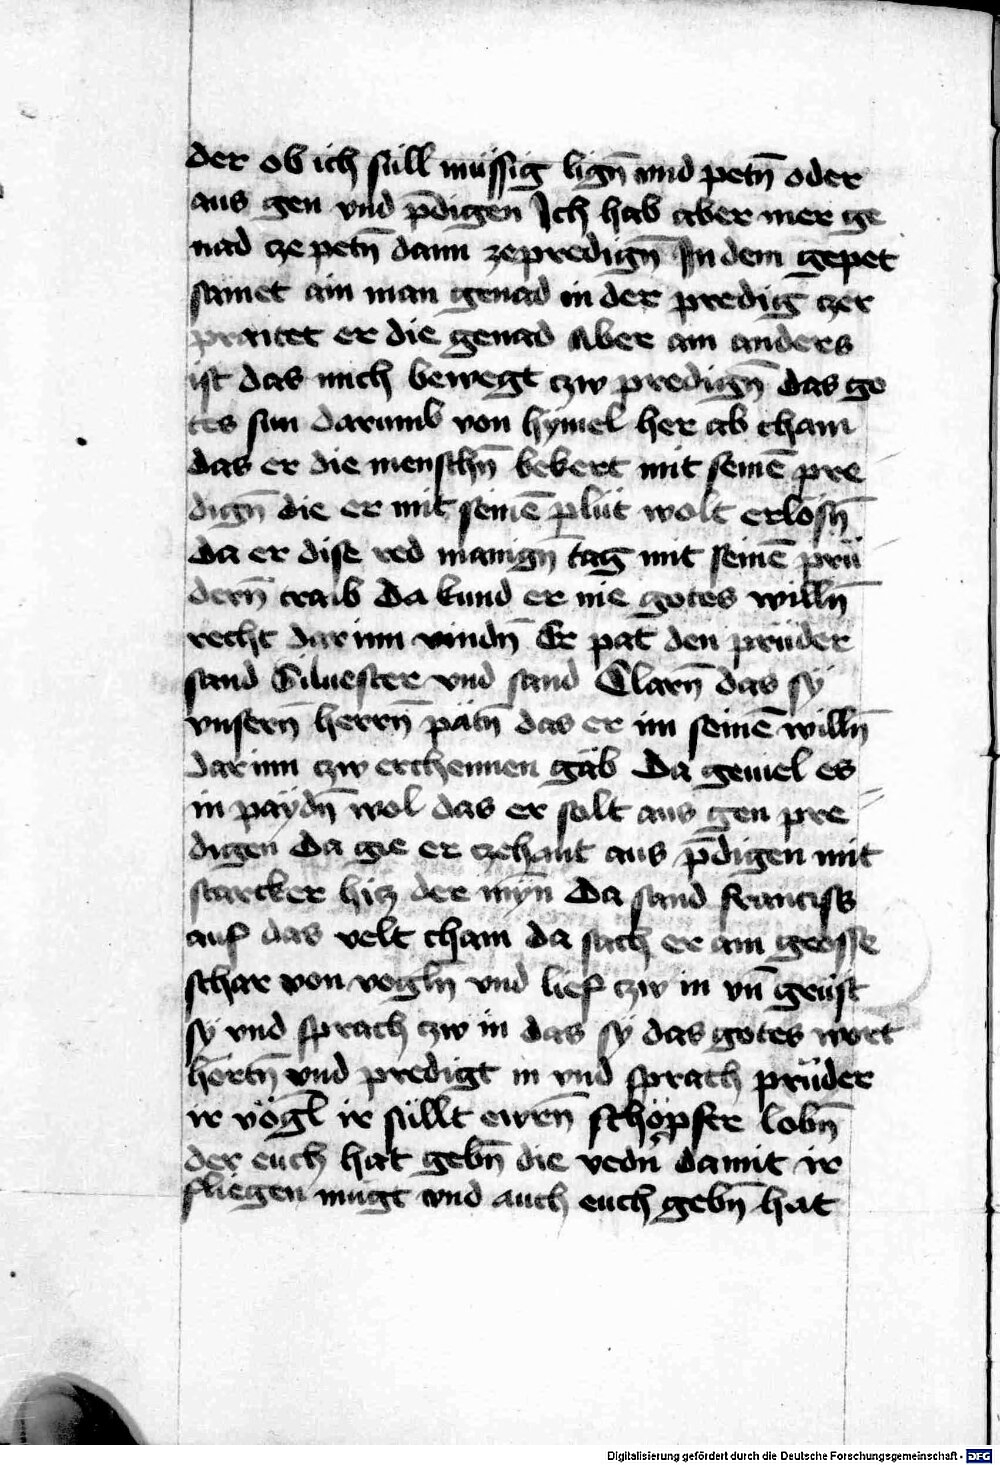 der ob ich süll müssig lign̄ vnd petn̄ oder
aus gen vnd p̄digen Ich hab aber mer ge
nad cze petn̄ dann zepredign̄ In dem gepet
samet ain man genad in der predig czer
praitet er die genad Aber ain anders
ist das mich bewegt czw predign̄ das go
tes sun darumb von hymel her ab cham
das er die menschn̄ bekert mit seinē pre
dign̄ die er mit seinē plüt wolt erlösn̄
Da er dise red manign̄ tag mit seinē prü
dern̄ traib Da kund er nie gotes willn̄
recht dar inn vindn̄ Er pat den prüder
sand Siluester vnd sand Clarn̄ das sy
vnsern̄ herrn̄ pätn̄ das er im seinē willn̄
dar inn czw erchennen gäb Da geuiel es
in paydn̄ wol das er solt aus gen pre
digen Da gie er czehant aus p̄digen mit
starcker hitz der myn̄ Da sand franciss
auf das velt cham da sach er ain grosse
schar von vogln̄ vnd lief czw in vn̄ grüst
sy vnd sprach czw in das sy das gotes wort
hortn̄ vnd predigt in vnd sprach prüder
ir vögl̄ ir süllt ewrn̄ schöpfer lobn̄
der euch hat gebn̄ die vedn̄ damit ir
fliegen mügt vnd auch euch gebn̄ hat
Digitalisierung gefördert durch die Deutsche Forschungsgemeinschaft - DFG